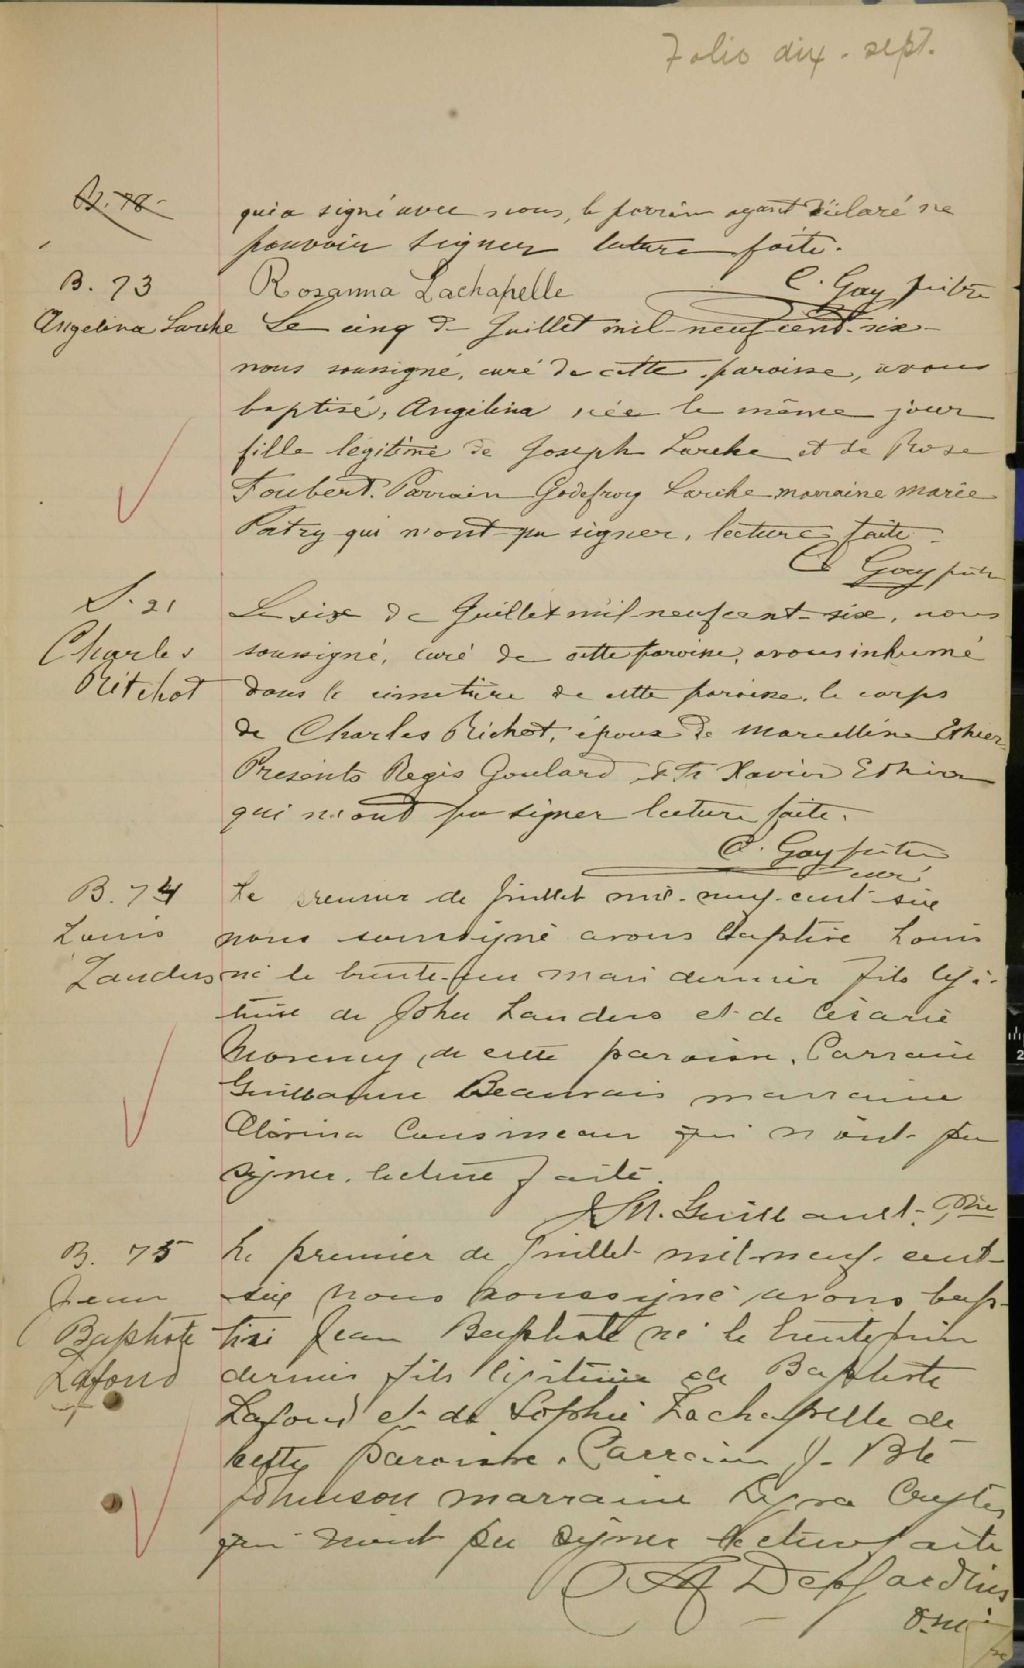 Folio dix-sept.
B. 78
qui a signé avec nous, le parrain ayant déclaré ne
pouvoir signer lecture faite.
Rosanna Lachapelle
C. Gay ptre
B. 73
Angelina Larche
Le cinq de Juillet mil-neuf cent-six
nous soussigné, curé de cette paroisse, avons
baptisé, Angélina née le même jour
fille légitime de Joseph Larche et de Rose
Foubert. Parrain Godefroy Larche marraine Marie
Patry qui n'ont pu signer, lecture faite.
C Gay ptre
S. 21
Charles
Ritchot
Le six de Juillet mil neuf cent-six, nous
soussigné, curé de cette paroisse, avons inhumé
dans le cimetière de cette paroisse, le corps
de Charles Richot, époux de Marcelline Ethier
Présents Regis Goulard & Fr Xavier Ethier
qui n'ont pu signer lecture faite.
C. Gay ptre
curé
B. 74
Louis
Landers
Le premier de Juillet mil-neuf-cent-six
nous soussigné avons baptisé Louis
né le trente-un mai dernier fils légi-
time de John Landers et de Césarie
de cette paroisse. Parrain
Guillaume Beauvais marraine
Clérina Cousineau qui n'ont pu
signer, lecture faite.
J.M. Guillault, Ptre
B. 75
Jean
Baptiste
Lafond
Le premier de Juillet mil-neuf-cent-
six nous soussigné avons bap-
tisé Jean Baptiste né le trente juin
dernier fils légitime de Baptiste
Lafond et de Sophie Lachapelle de
cette paroisse. Parrain J-Bte
Johnson marraine
qui n'ont pu signer lecture faite
Desjardins
o.m.i.